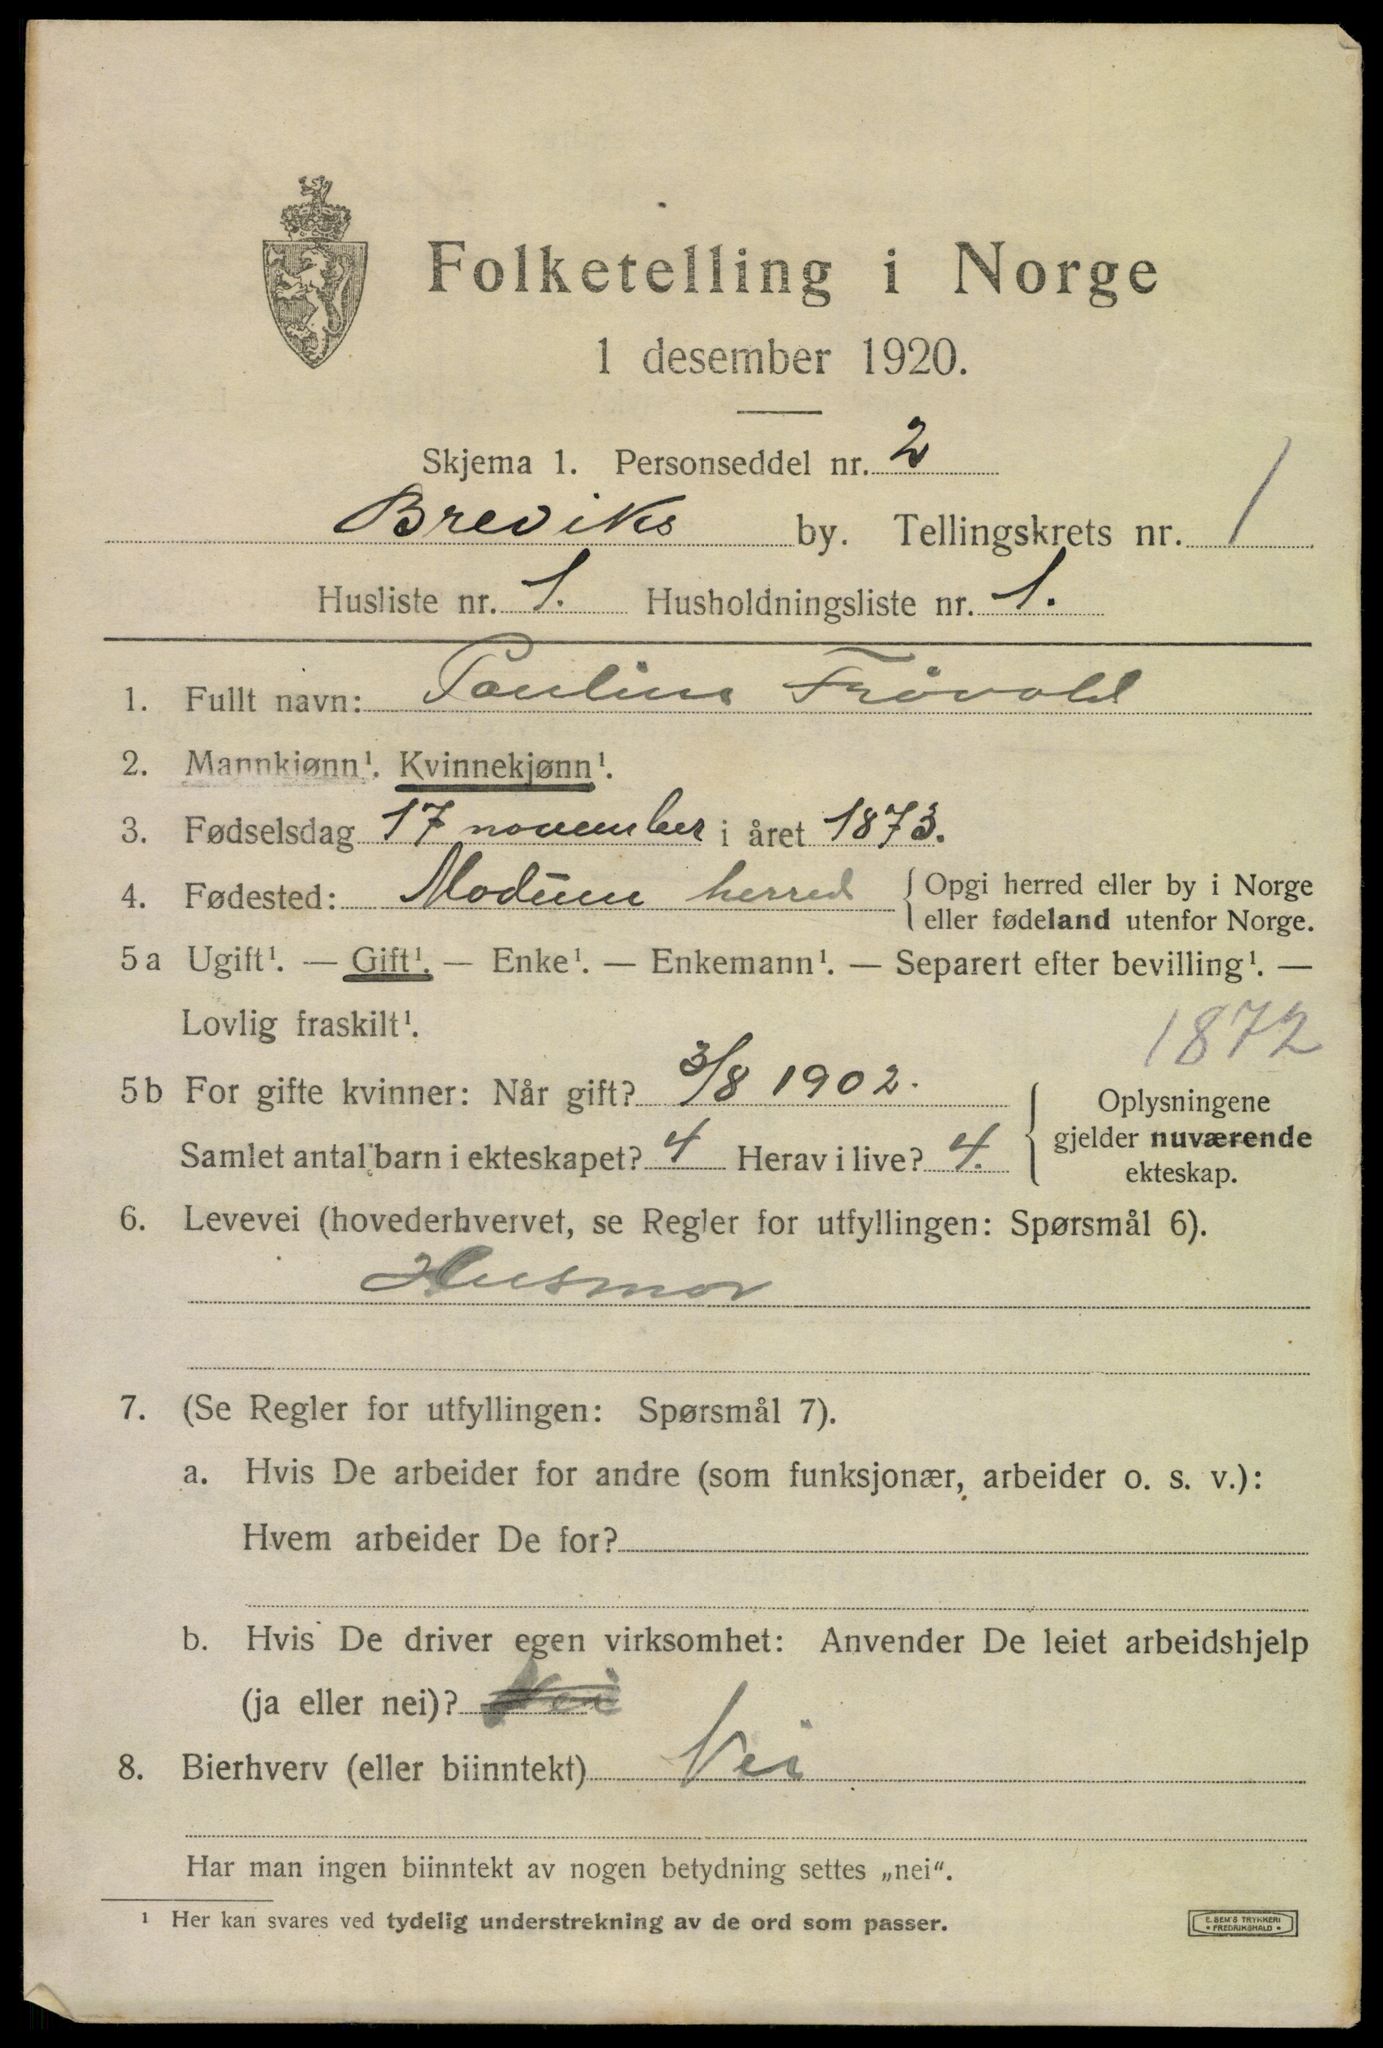 Folketelling i Norge
1 desember 1920.
Skjema 1. Personseddel nr. 2
Breviks by. Tellingskrets nr. 1
Husliste nr. 1. Husholdningsliste nr. 1.
1. Fullt navn: Pauline Frövold
2. Mannkjønn¹. Kvinnekjønn¹.
3. Fødselsdag 17 november i året 1873.
4. Fødested: Modum herred { Opgi herred eller by i Norge
eller fødeland utenfor Norge.
5a Ugift¹. — Gift¹. — Enke¹. — Enkemann¹. — Separert efter bevilling¹. —
Lovlig fraskilt¹.
1872
5b For gifte kvinner: Når gift? 3/8 1902.
Samlet antal barn i ekteskapet? 4 Herav i live? 4.
{ Oplysningene
gjelder nuværende
ekteskap.
6. Levevei (hovederhvervet, se Regler for utfyllingen: Spørsmål 6).
Husmor
7. (Se Regler for utfyllingen: Spørsmål 7).
a. Hvis De arbeider for andre (som funksjonær, arbeider o. s. v.):
Hvem arbeider De for?
b. Hvis De driver egen virksomhet: Anvender De leiet arbeidshjelp
(ja eller nei)? Nei
8. Bierhverv (eller biinntekt) Nei
Har man ingen biinntekt av nogen betydning settes „nei“.
¹ Her kan svares ved tydelig understrekning av de ord som passer.
E. SEM'S TRYKKERI
• FREDRIKSHALD •